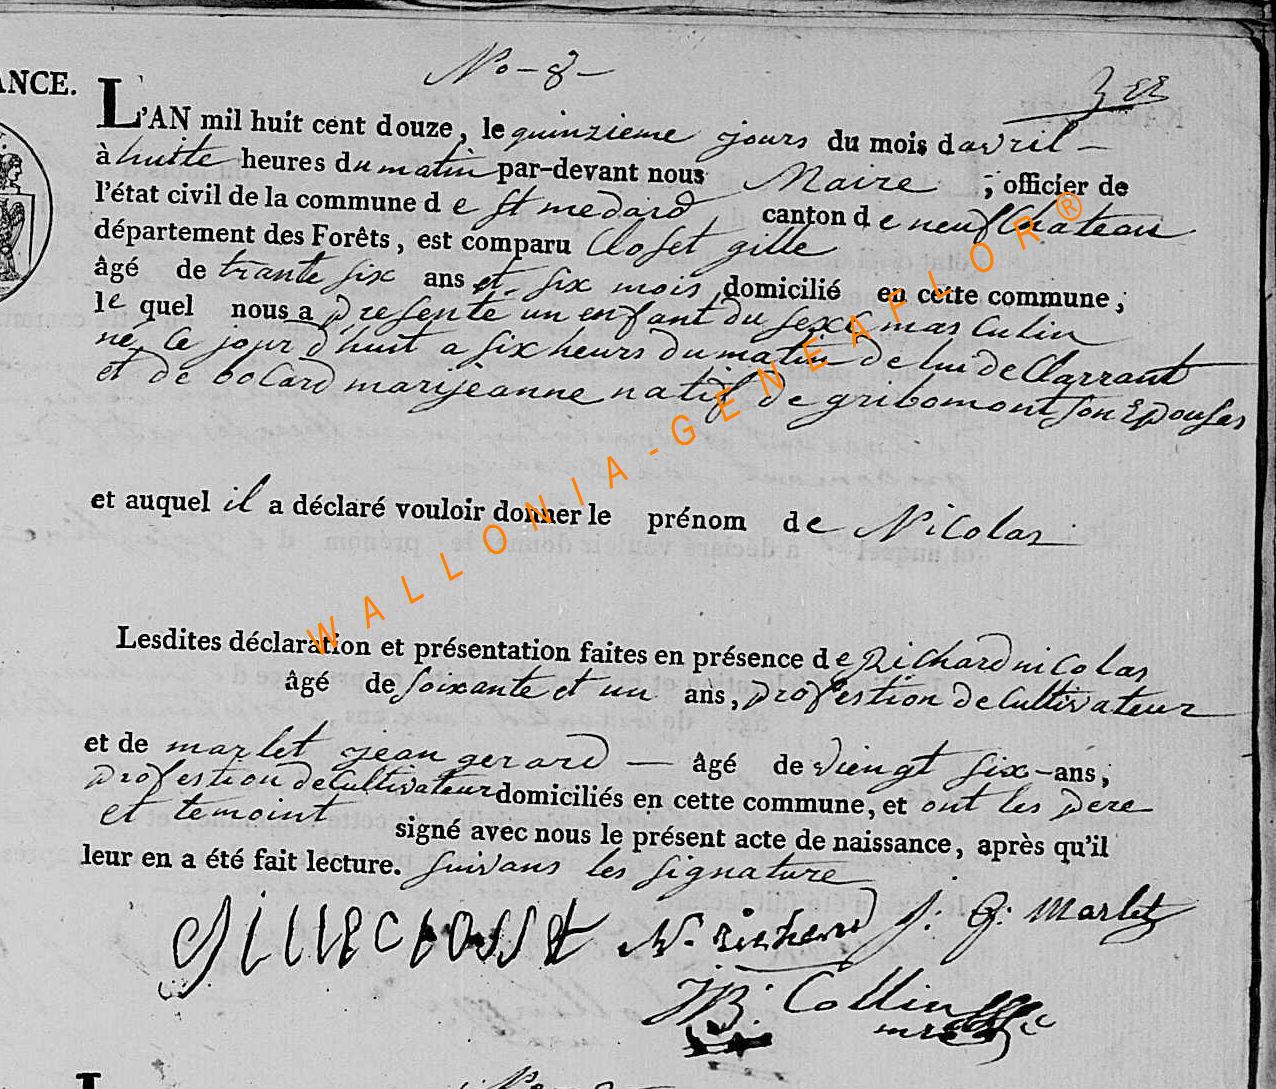 No - 8 -
ANCE.
L'AN mil huit cent douze, le quinzieme jours du mois d avril -
à huitte heures du matin par-devant nous Maire ; officier de
l'état civil de la commune d e st medard, canton d e neufchateau
département des Forêts, est comparu Closet gille
âgé de trante six ans et six mois domicilié en cette commune;
le quel nous a presente un enfant du sexe masculin
né ce jour d'huit a six heurs du matin de lui declarrant
et de bolard marijeanne natif de gribomont son Epouses
et auquel il a déclaré vouloir donner le prénom de Nicolas
Lesdites déclaration et présentation faites en présence de Richard nicolas
âgé de soixante et un ans, profestion de cultivateur
et de marlet jean gerard — âgé de viengt six - ans;
profestion de cultivateur domiciliés en cette commune, et ont les pere
et temoint signé avec nous le présent acte de naissance, après qu'il
leur en a été fait lecture. suivans les signature
gille closset N. richard J: G: Marlet
JB: Collin
WALLONIA-GENEAFLOR®